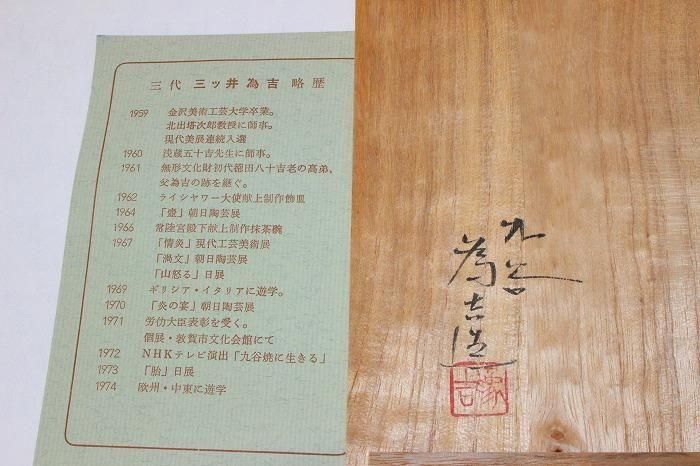 三代 三ッ井為吉 略歴
1959 金沢美術工芸大学卒業。
北出塔次郎教授に師事。
現代美展連続入選
1960 浅蔵五十吉先生に師事。
1961 無形文化財初代徳田八十吉老の高弟、
父為吉の跡を継ぐ。
1962 ライシャワー大使献上制作飾皿
1964 「壷」朝日陶芸展
1966 常陸宮殿下献上制作抹茶碗
1967 「情炎」現代工芸美術展
「渦文」朝日陶芸展
「山怒る」日展
1969 ギリシア・イタリアに遊学。
1970 「炎の宴」朝日陶芸展
1971 労仂大臣表彰を受く。
個展・敦賀市文化会館にて
1972 NHKテレビ演出「九谷焼に生きる」
1973 「胎」日展
1974 欧州・中東に遊学
九谷
為吉造